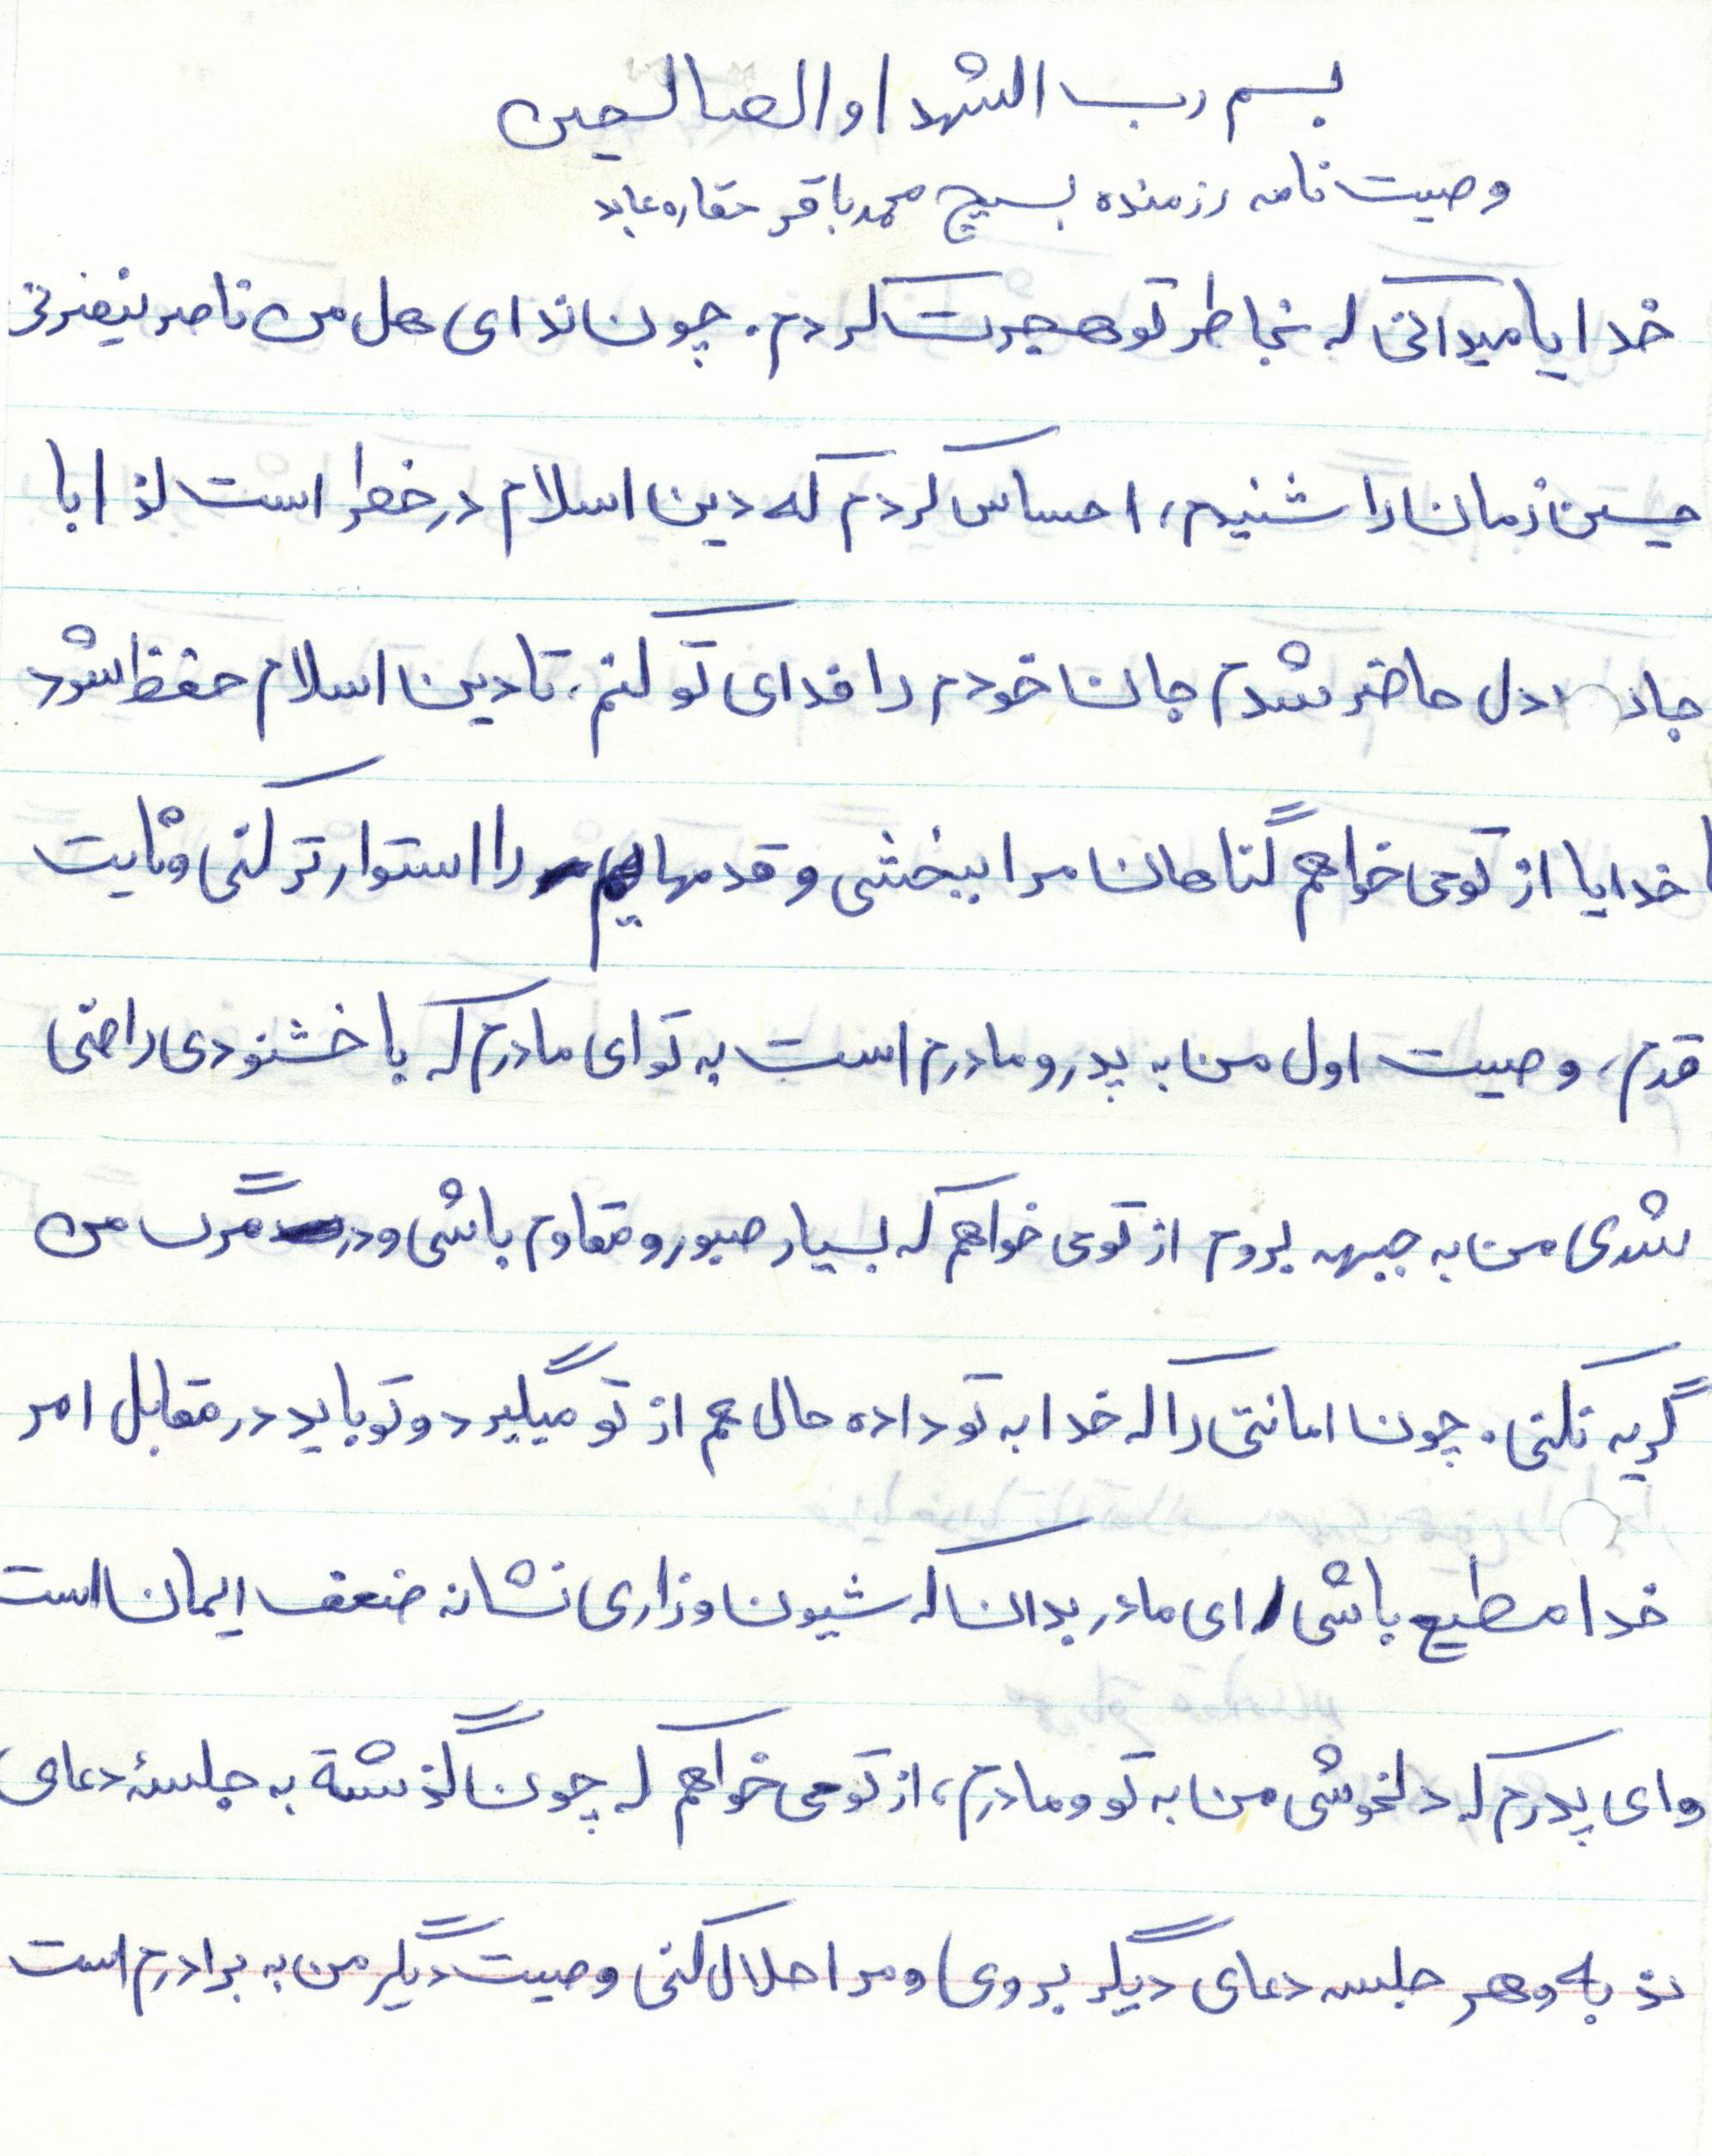 بسم رب الشهدا والصالحین
وصیت نامه رزمنده بسیج محمدباقر حقاره عابد
خدایا میدانی که بخاطر تو هجرت کردم. چون ندای هل من ناصر ینصرنی
حسین زمان را شنیدم، احساس کردم که دین اسلام در خطر است لذا با
جان دل حاضر شدم جان خودم را فدای تو کنم، تا دین اسلام حفظ شود
خدایا از تو می خواهم گناهان مرا ببخشی و قدمهایم را استوارتر کنی و ثابت
قدم، وصیت اول من به پدر و مادرم است به تو ای مادرم که با خشنودی راضی
شدی من به جبهه بروم از تو می خواهم که بسیار صبور و مقاوم باشی و در مرگ من
گریه نکنی. چون امانتی را که خدا به تو داده حال هم از تو میگیرد و تو باید در مقابل امر
خدا مطیع باشی ای مادر بدان که شیون و زاری نشانه ضعف ایمان است
و ای پدرم که دلخوشی من به تو و مادرم، از تو می خواهم که چون گذشتة به جلسۀ دعای
ندبه و هر جلسه دعای دیگر بروی و مرا حلال کنی وصیت دیگر من به برادرم است